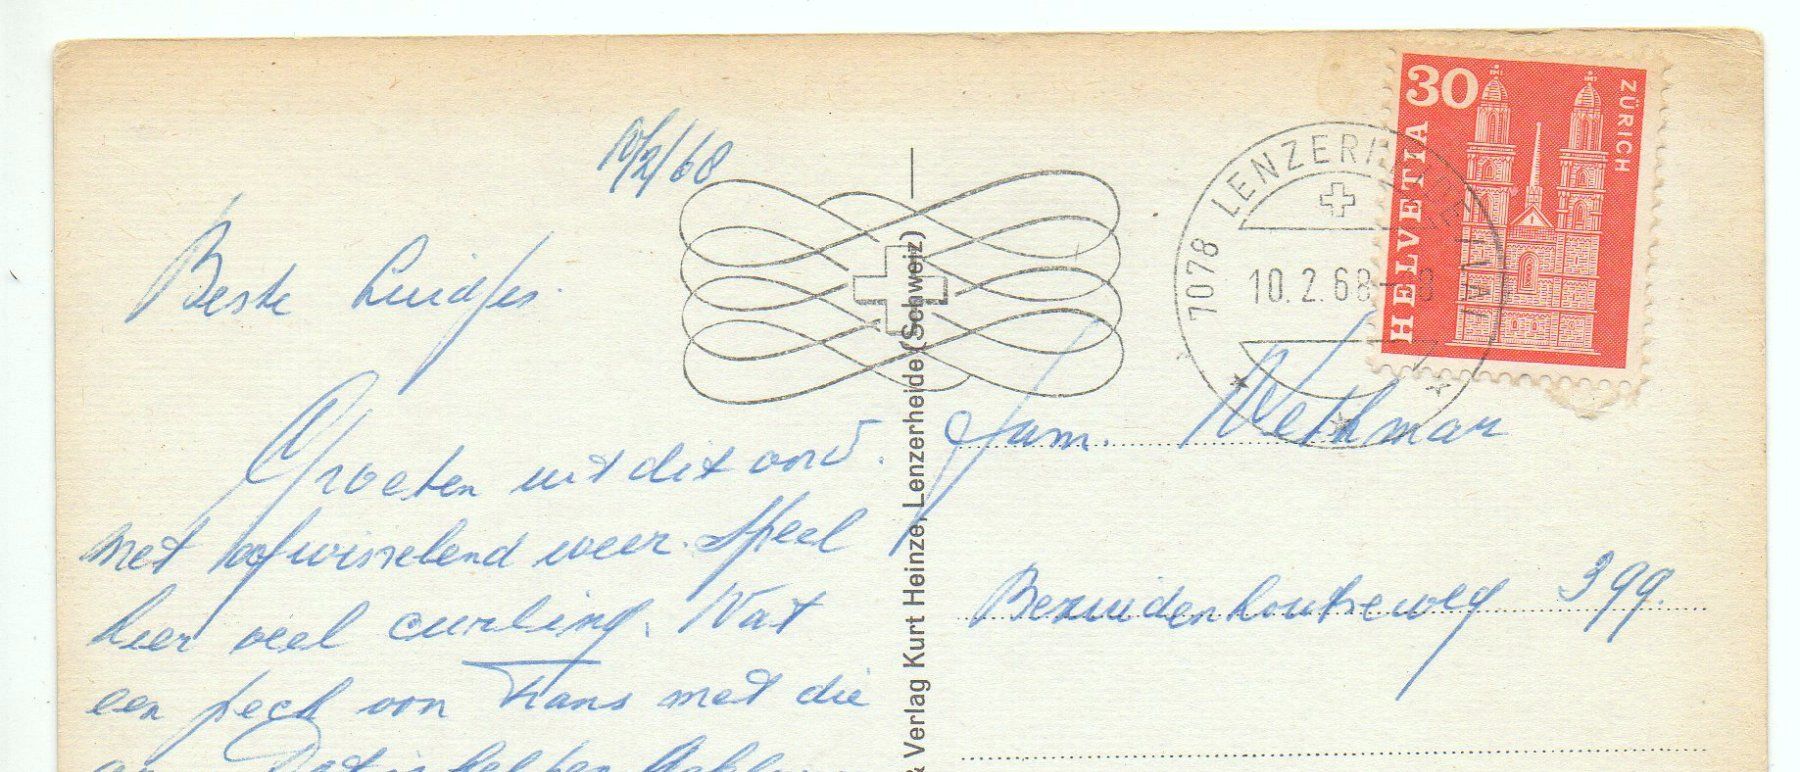 10/2/68
Beste Luidjes.
Groeten uit dit oord.
met afwisselend weer. Speel
hier veel curling. Wat
een pech van Frans met die
Fam. Wethmar
Bezuidenhoutseweg 399.
& Verlag Kurt Heinze, Lenzerheide (Schweiz)
7078 LENZERHEIDE
10.2.68
30
HELVETIA
ZÜRICH